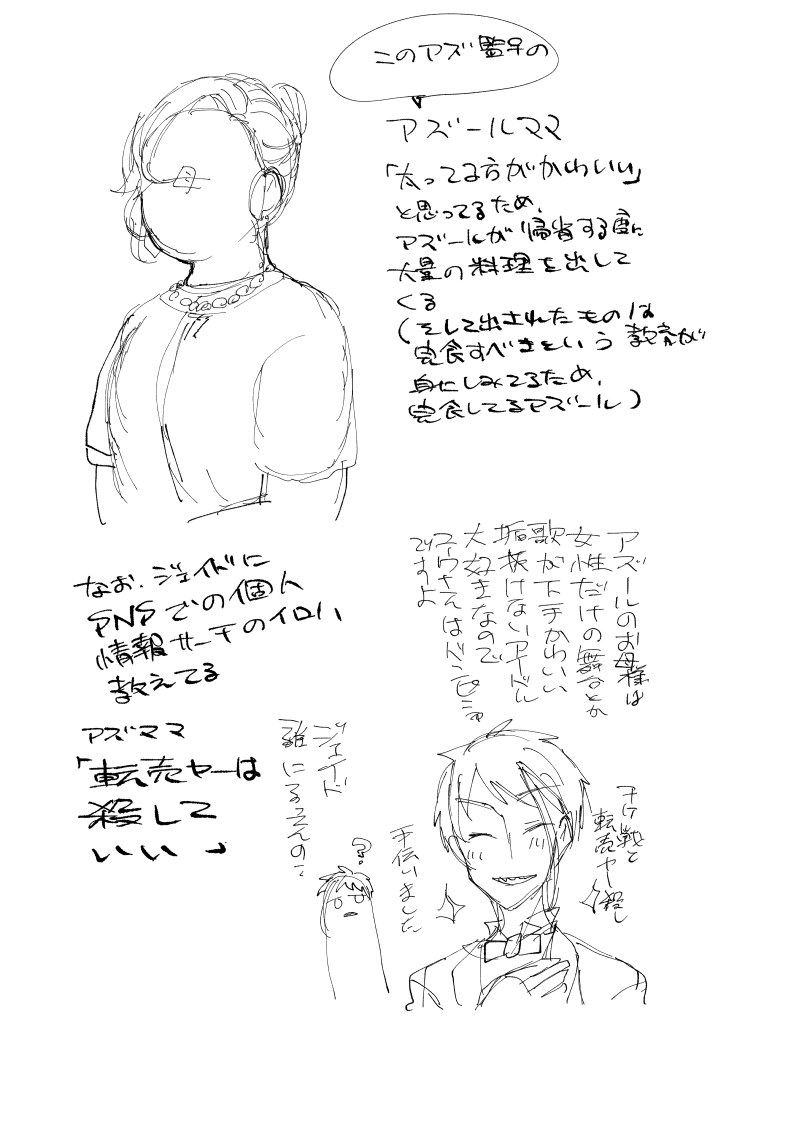 このアズ監督の
アズールママ
「太ってる方がかわいい」
と思ってるため、
アズールが帰省する度に
大量の料理を出して
くる
(そして出されたものは
完食すべきという教育が
身にしみてるため、
完食してるアズール)
アズールのお母様は
女性だけの舞台とか
歌が下手かわいい
垢抜けないアイドル
大好きなので
ユウさんはドンピシャ
ですよ
なお、ジェイドに
SNSでの個人
情報サーチのイロハ
教えてる
アズママ
「転売ヤーは
殺して
いい」
チケ戦と
転売ヤー殺し
手伝いました
ジェイド
誰にるさんの?
?
母